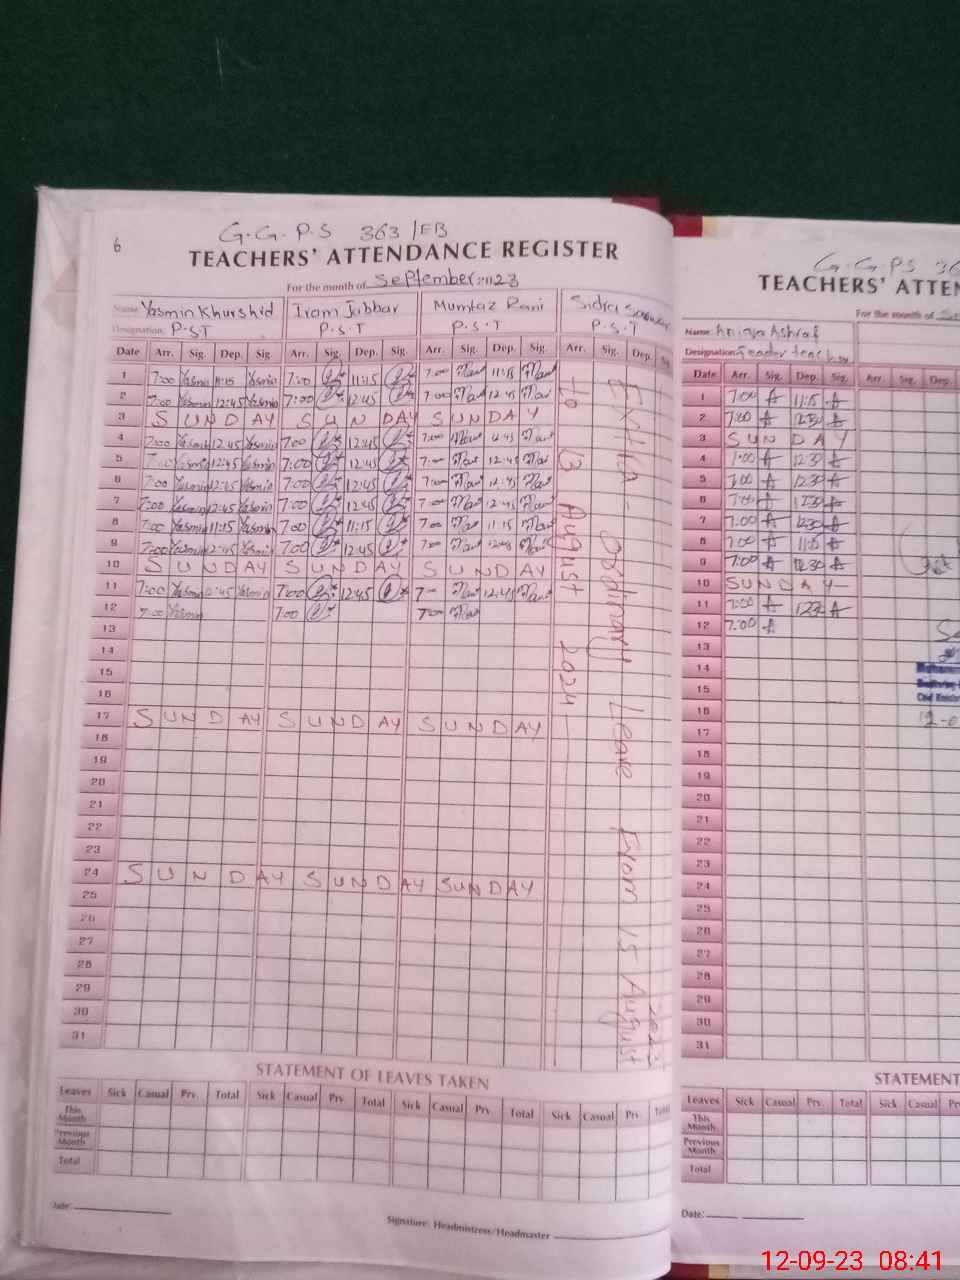 6
G.G.P.S 363/EB
TEACHERS' ATTENDANCE REGISTER
For the month of September 2023
Name Yasmin Khurshid Iram Jabbar Mumtaz Rani Sidra
Designation: P.S.T P.S.T P.S.T P.S.T
Date Arr. Sig. Dep. Sig Arr. Sig. Dep. Sig. Arr. Sig. Dep. Sig. Arr. Sig. Dep. Sig
1 7:00 Yasmin 11:15 Yasmin 7:00 11:15 7:00 11:15
2 7:00 Yasmin 12:45 Yasmin 7:00 12:45 7:00 12:45
3 SUNDAY SUNDAY SUNDAY
4 7:00 Yasmin 12:45 Yasmin 7:00 12:45 7:00 12:45
5 7:00 Yasmin 12:45 Yasmin 7:00 12:45 7:00 12:45
6 7:00 Yasmin 12:45 Yasmin 7:00 12:45 7:00 12:45
7 7:00 Yasmin 12:45 Yasmin 7:00 12:45 7:00 12:45
8 7:00 Yasmin 11:15 Yasmin 7:00 11:15 7:00 11:15
9 7:00 Yasmin 12:45 Yasmin 7:00 12:45 7:00 12:45
10 SUNDAY SUNDAY SUNDAY
11 7:00 Yasmin 12:45 Yasmin 7:00 12:45 7:00 12:45
12 7:00 Yasmin 7:00 7:00
13
14
15
16
17 SUNDAY SUNDAY SUNDAY
18
19
20
21
22
23
24 SUNDAY SUNDAY SUNDAY
25
26
27
28
29
30
31
Extra-ordinary Leave From 15 August 2023
to 13 August 2024
STATEMENT OF LEAVES TAKEN
Leaves Sick Casual Prv. Total Sick Casual Prv. Total Sick Casual Prv. Total Sick Casual Prv. Total
This Month
Previous Month
Total
Date:
Signature: Headmistress/Headmaster
G.G.PS 36
TEACHERS' ATTEN
For the month of
Name: Aniqa Ashraf
Designation:
Date Arr. Sig. Dep. Sig. Arr. Sig. Dep
1 7:00 A 11:15 A
2 7:00 A 12:30 A
3 SUNDAY
4 7:00 A 12:30 A
5 7:00 A 12:30 A
6 7:00 A 12:30 A
7 7:00 A 12:30 A
8 7:00 A 11:15 A
9 7:00 A 12:30 A
10 SUNDAY
11 7:00 A 1230 A
12 7:00 A
13
14
15
16
17
18
19
20
21
22
23
24
25
26
27
28
29
30
31
STATEMENT
Leaves Sick Casual Prv. Total Sick Casual Pr
This Month
Previous Month
Total
Date:
12-09-23 08:41